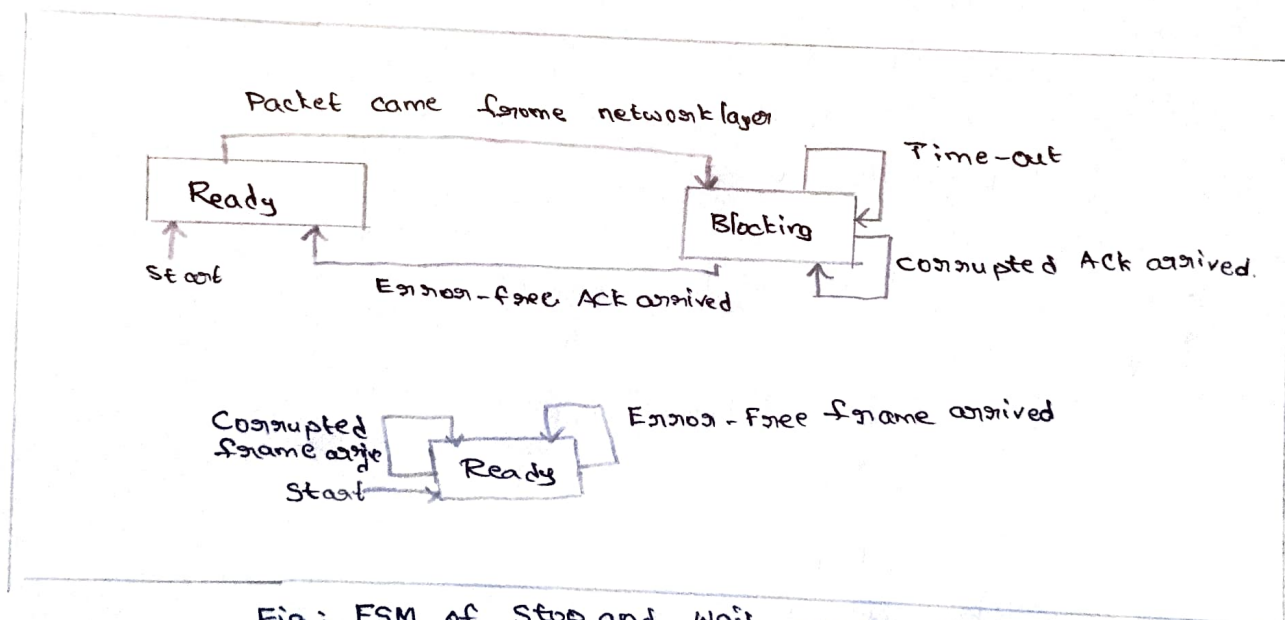 Packet came frome network layer
Time-out
Ready
Blocking
Start
Corrupted ACK arrived.
Error-free ACK arrived
Corrupted
frame
Error-Free frame arrived
Ready
Start
Fig: FSM of Stop and Wait